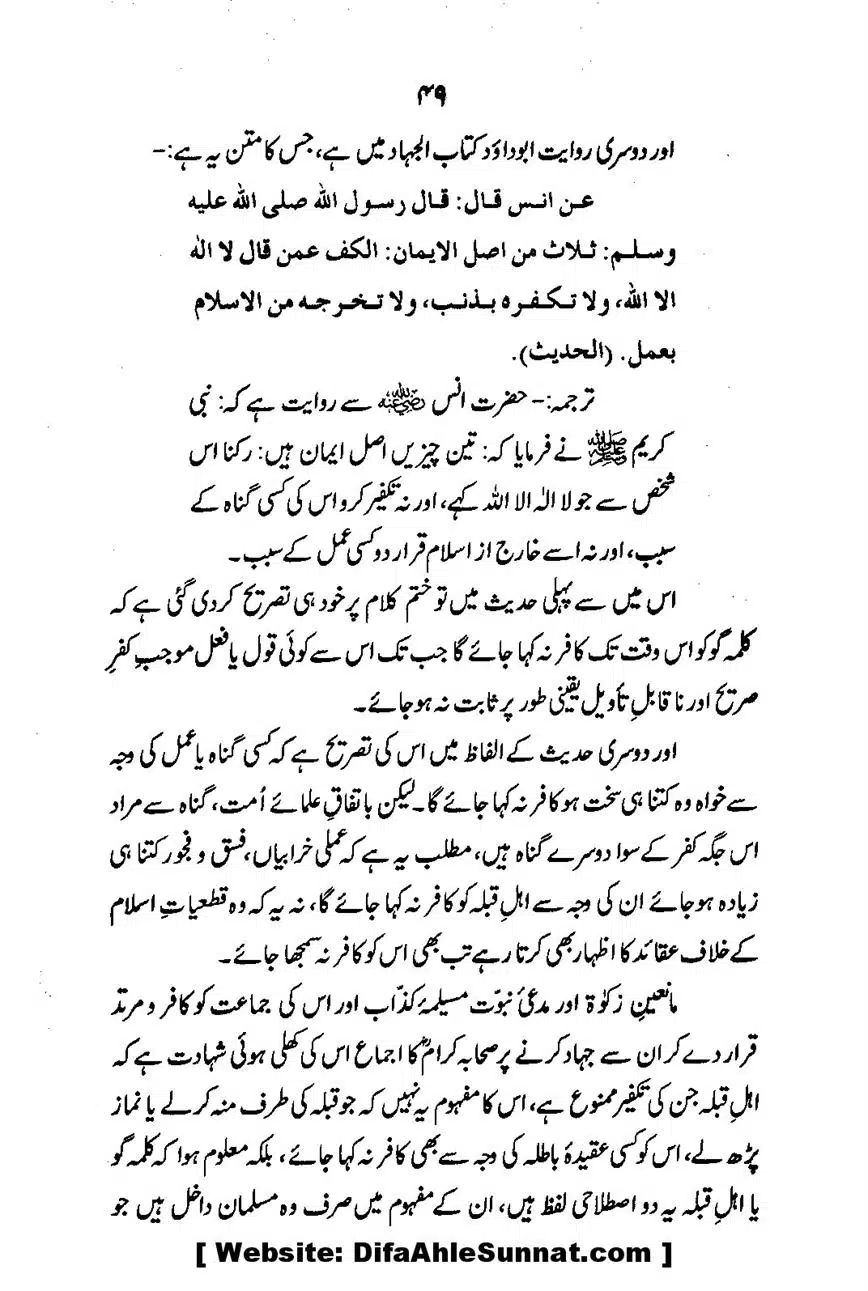 ۴۹
اور دوسری روایت ابوداؤد کتاب الجہاد میں ہے، جس کا متن یہ ہے:-
عن انس قال: قال رسول الله صلی الله علیه
وسلم: ثلاث من اصل الایمان: الکف عمن قال لا اله
الا الله، ولا تکفره بذنب، ولا تخرجه من الاسلام
بعمل. (الحدیث).
ترجمہ:- حضرت انس رضی اللہ عنہ سے روایت ہے کہ: نبی
کریم ﷺ نے فرمایا کہ: تین چیزیں اصل ایمان ہیں: رکنا اس
شخص سے جو لا الہ الا اللہ کہے، اور نہ تکفیر کرو اس کی کسی گناہ کے
سبب، اور نہ اسے خارج از اسلام قرار دو کسی عمل کے سبب۔
اس میں سے پہلی حدیث میں تو ختم کلام پر خود ہی تصریح کر دی گئی ہے کہ
کلمہ گو کو اس وقت تک کافر نہ کہا جائے گا جب تک اس سے کوئی قول یا فعل موجبِ کفرِ
صریح اور ناقابلِ تأویل یقینی طور پر ثابت نہ ہو جائے۔
اور دوسری حدیث کے الفاظ میں اس کی تصریح ہے کہ کسی گناہ یا عمل کی وجہ
سے خواہ وہ کتنا ہی سخت ہو کافر نہ کہا جائے گا۔ لیکن باتفاقِ علمائے اُمت، گناہ سے مراد
اس جگہ کفر کے سوا دوسرے گناہ ہیں، مطلب یہ ہے کہ عملی خرابیاں، فسق و فجور کتنا ہی
زیادہ ہو جائے ان کی وجہ سے اہلِ قبلہ کو کافر نہ کہا جائے گا، نہ یہ کہ وہ قطعیاتِ اسلام
کے خلاف عقائد کا اظہار بھی کرتا رہے تب بھی اس کو کافر نہ سمجھا جائے۔
مانعینِ زکوٰۃ اور مدعیٔ نبوّت مسیلمۂ کذّاب اور اس کی جماعت کو کافر و مرتد
قرار دے کر ان سے جہاد کرنے پر صحابہ کرامؓ کا اجماع اس کی کھلی ہوئی شہادت ہے کہ
اہلِ قبلہ جن کی تکفیر ممنوع ہے، اس کا مفہوم یہ نہیں کہ جو قبلہ کی طرف منہ کر لے یا نماز
پڑھ لے، اس کو کسی عقیدۂ باطلہ کی وجہ سے بھی کافر نہ کہا جائے، بلکہ معلوم ہوا کہ کلمہ گو
یا اہلِ قبلہ یہ دو اصطلاحی لفظ ہیں، ان کے مفہوم میں صرف وہ مسلمان داخل ہیں جو
[ Website: DifaAhleSunnat.com ]